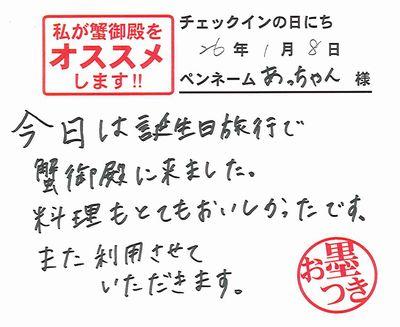 私が蟹御殿を
オススメ
します!!
チェックインの日にち
26年1月8日
ペンネーム あっちゃん 様
今日は誕生日旅行で
蟹御殿に来ました。
料理もとてもおいしかったです。
また利用させて
いただきます。
お墨つき